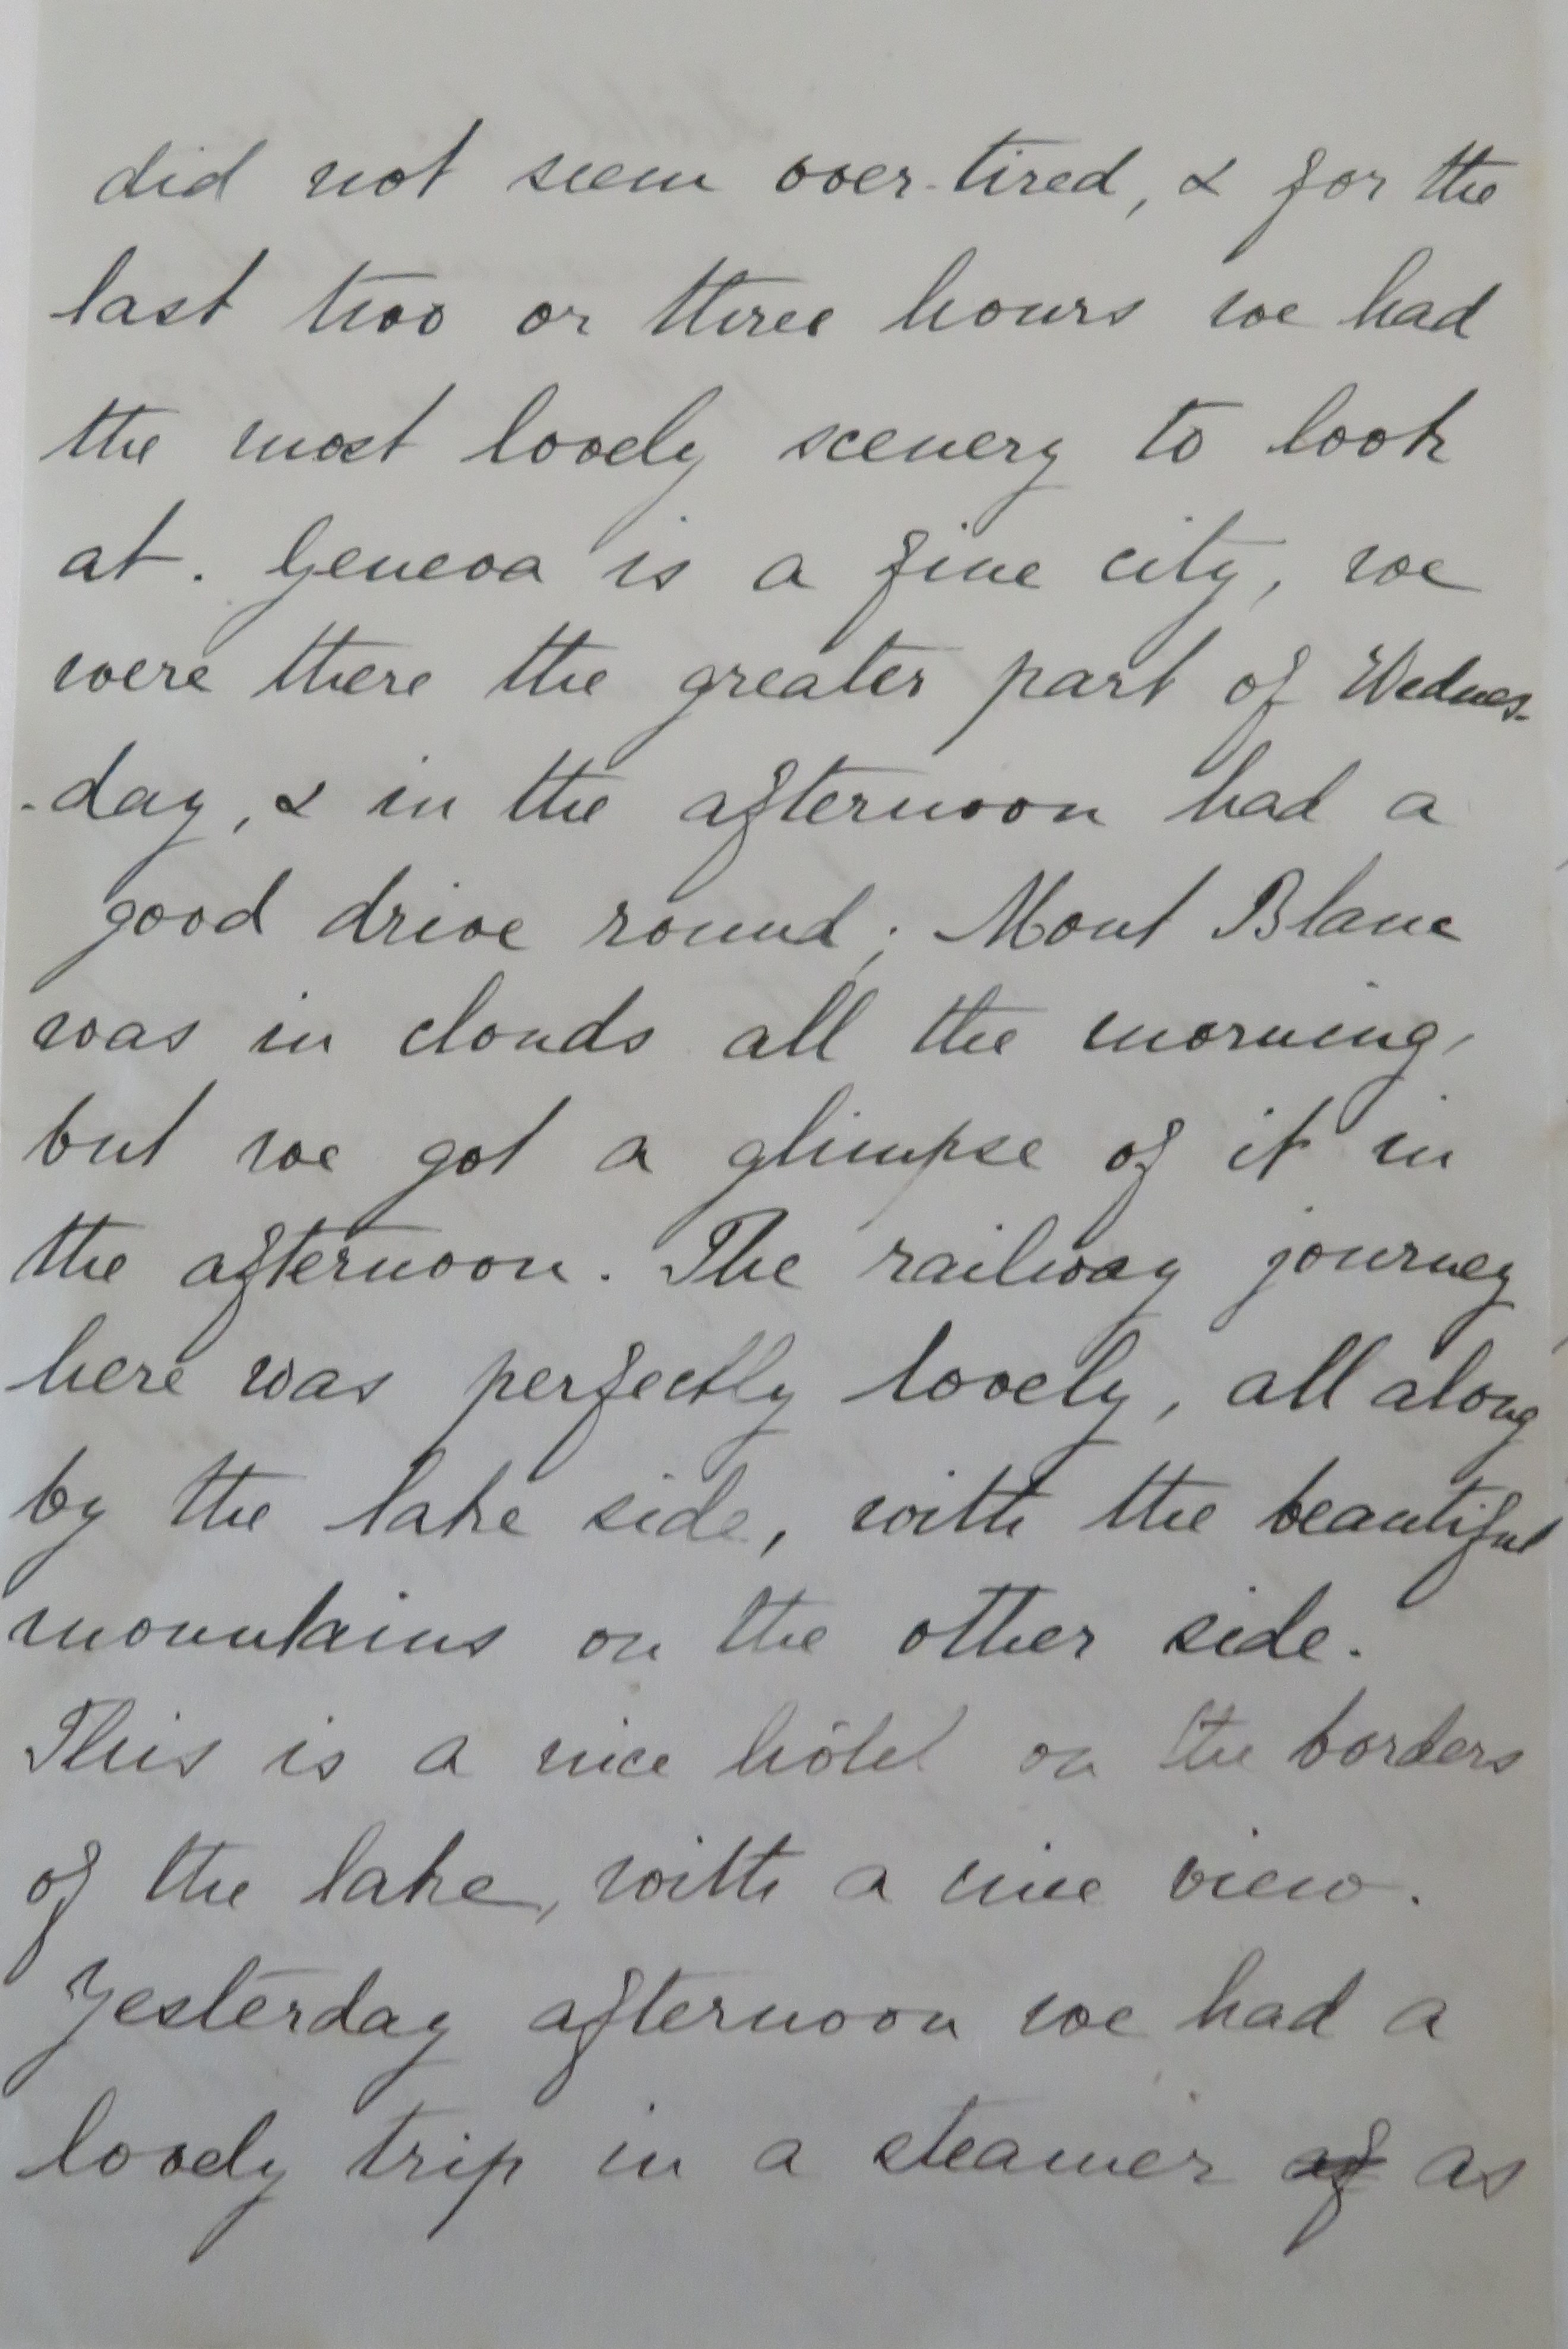 did not seem over-tired, & for the
last two or three hours we had
the most lovely scenery to look
at. Geneva is a fine city, we
were there the greater part of Wednes-
-day, & in the afternoon had a
good drive round; Mont Blanc
was in clouds all the morning,
but we got a glimpse of it in
the afternoon. The railway journey
here was perfectly lovely, all along
by the lake side, with the beautiful
mountains on the other side.
This is a nice hôtel on the borders
of the lake, with a nice view.
Yesterday afternoon we had a
lovely trip in a steamer as